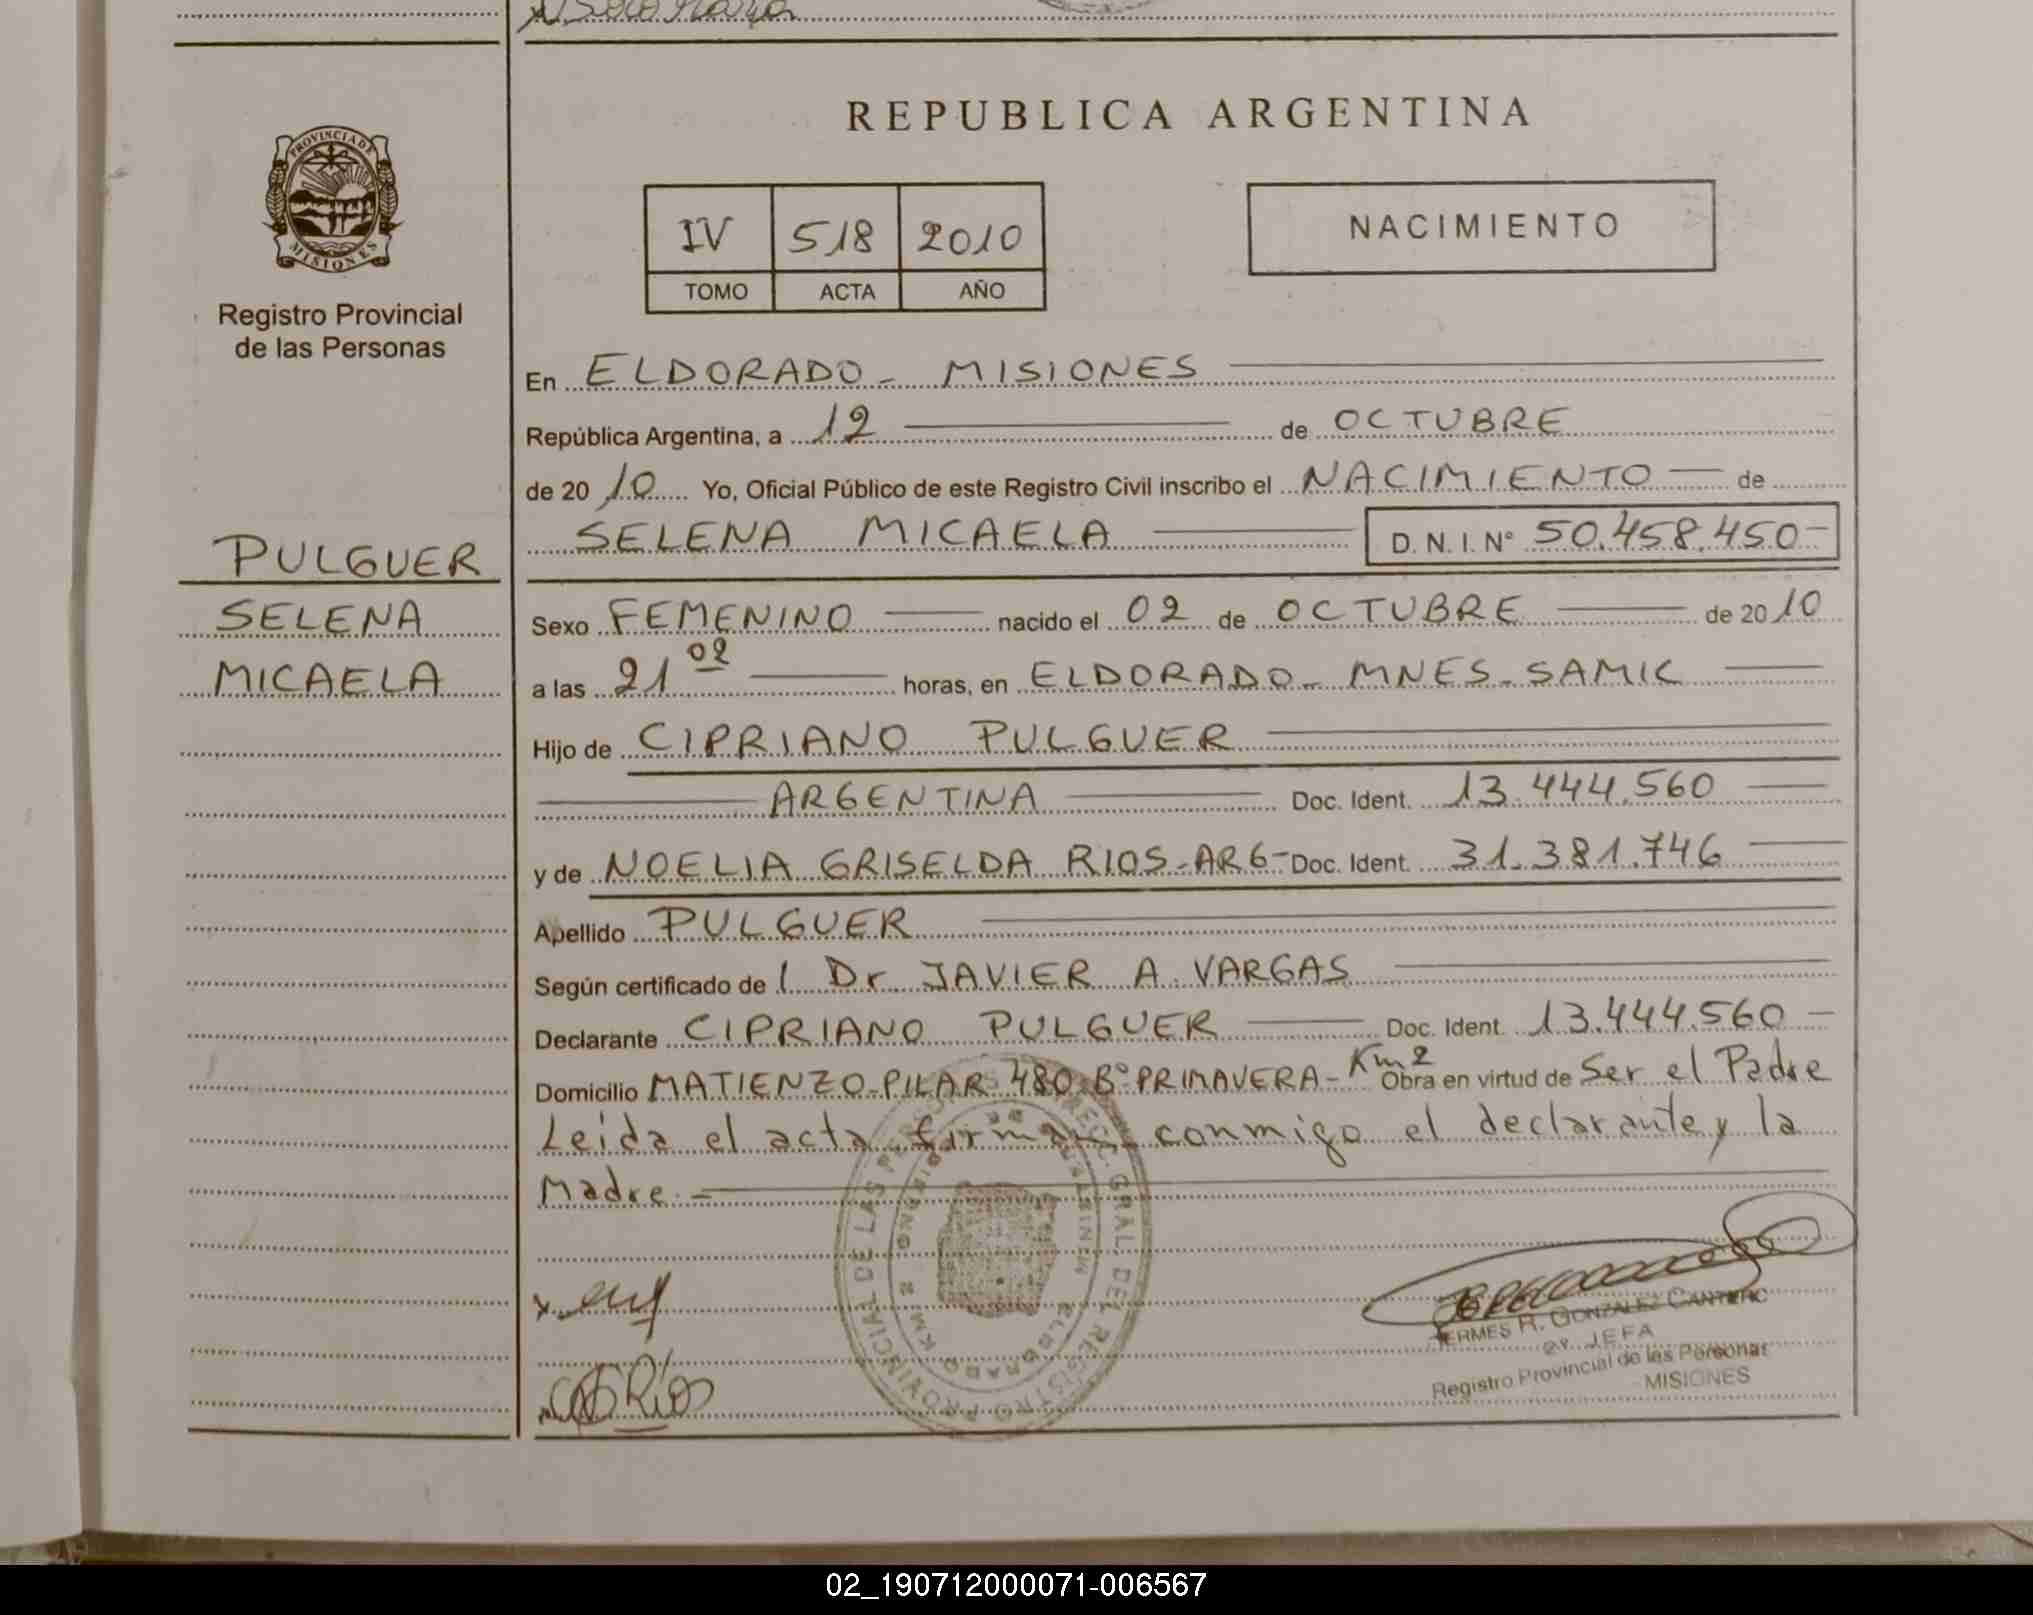 REPUBLICA ARGENTINA
PROVINCIA DE
MISIONES
Registro Provincial
de las Personas
IV 518 2010
TOMO ACTA AÑO
NACIMIENTO
PULGUER
SELENA
MICAELA
En ELDORADO - MISIONES
República Argentina, a 12 de OCTUBRE
de 20 10 Yo, Oficial Público de este Registro Civil inscribo el NACIMIENTO de
SELENA MICAELA D. N. I. Nº 50.458.450-
Sexo FEMENINO nacido el 02 de OCTUBRE de 20 10
a las 21 02 horas, en ELDORADO - MNES - SAMIC
Hijo de CIPRIANO PULGUER
ARGENTINA Doc. Ident. 13.444.560
y de NOELIA GRISELDA RIOS - ARG - Doc. Ident. 31.381.746
Apellido PULGUER
Según certificado de Dr JAVIER A. VARGAS
Declarante CIPRIANO PULGUER Doc. Ident. 13.444.560 -
Domicilio MATIENZO - PILAR 480 Bº PRIMAVERA - Km 2 Obra en virtud de Ser el Padre
Leida el acta firman conmigo el declarante y la
Madre. -
DIREC. GRAL. DEL REGISTRO PROVINCIAL DE LAS PERSONAS
ELDORADO KM 2
Rios
HERMES R. GONZALEZ CANTERO
JEFA
Registro Provincial de las Personas
MISIONES
02_190712000071-006567